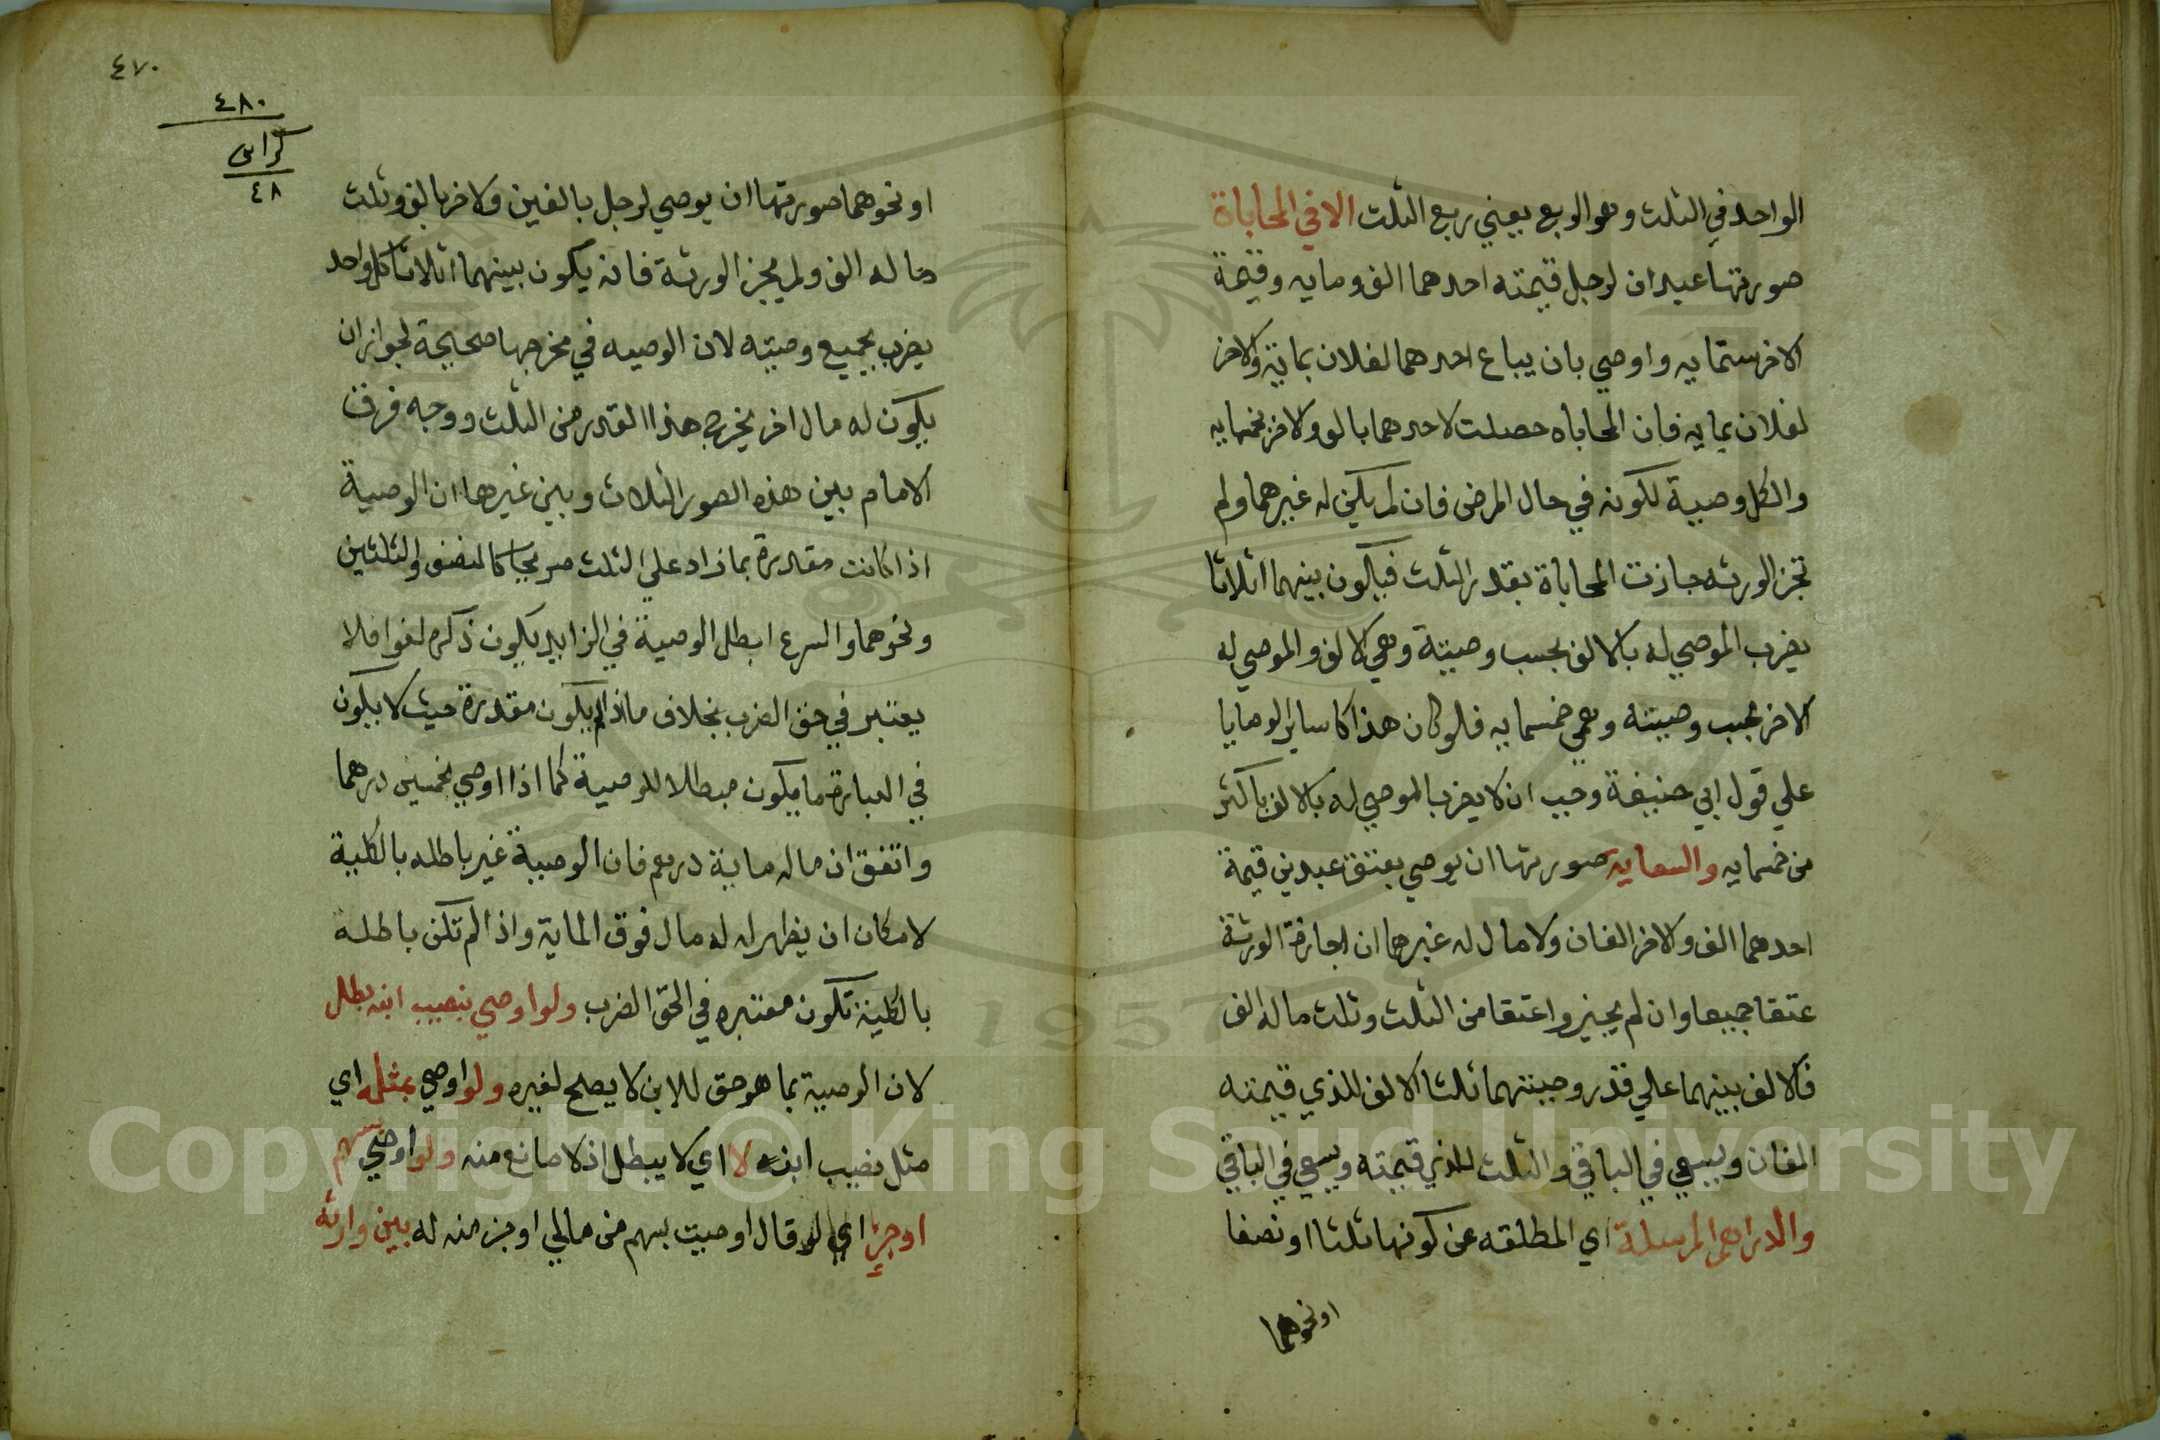 الواحد في الثلث وهو الربع يعني ربع الثلث الا في المحاباة
صورتها عبدان لرجل قيمته احدهما الف ومايه وقيمة
الاخر ستمايه واوصي بان يباع احدهما لفلان بماية والاخر
لفلان بمايه فان المحاباه حصلت لاحدهما بالف والاخر بخمسمايه
والكل وصية لكونه في حال المرض فان لم يكن له غيرهما ولم
تجز الورثه جازت المحاباة بقدر الثلث فيكون بينهما اثلاثا
يضرب الموصي له بالالف بحسب وصيته وهي الالف والموصي له
الاخر بحسب وصيته وهي خمسمايه فلو كان هذا كساير الوصايا
علي قول ابي حنيفة وجب ان لا يضرب الموصي له بالالف باكثر
من خمسمايه والسعايه صورتها ان يوصي بعتق عبدين قيمة
احدهما الف والاخر الفان ولا مال له غيرهما ان اجازة الورثة
عتقا جميعا وان لم يجيزوا عتقا من الثلث وثلث ماله الف
فالالف بينهما علي قدر وصيتهما ثلثا الالف للذي قيمته
الفان ويسعي في الباقي والثلث للذي قيمته ويسعي في الباقي
والدراهم المرسلة اي المطلقه عن كونها ثلثا او نصفا
او نحوهما
٤٧٠
٤٨٠
كراس
٤٨
او نحوهما صورتها ان يوصي لرجل بالفين ولاخر بالف وثلث
ماله الف ولم يجز الورثة فانه يكون بينهما اثلاثا كل واحد
يضرب بجميع وصيته لان الوصيه في مخرجها صحيحة لجواز ان
يكون له مال اخر يخرج هذا القدر من الثلث ووجه فرق
الامام بين هذه الصور الثلاث وبين غيرها ان الوصية
اذا كانت مقدرة بما زاد علي الثلث صريحا كالنصف والثلثين
ونحوهما والشرع ابطل الوصية في الزايد يكون ذكره لغوا فلا
يعتبر في حق الضرب بخلاف ما اذا لم يكون مقدرة حيث لا يكون
في العبارة ما يكون مبطلا للوصية كما اذا اوصي بخمسين درهما
واتفق ان ماله ماية درهم فان الوصية غير باطله بالكلية
لامكان ان يظهر له مال فوق الماية واذا لم تكن باطلة
بالكلية تكون معتبره في الحق الضرب ولو اوصي بنصيب ابنه بطل
لان الوصية بما هو حق للابن لا يصلح لغيره ولو اوصي بمثله اي
مثل نصيب ابنه لا اي لا يبطل اذ لا مانع منه ولو اوصي بسهم
او جزء اي لو قال اوصيت بسهم من مالي او جزء منه له بين وارثه
Copyright © King Saud University
1957